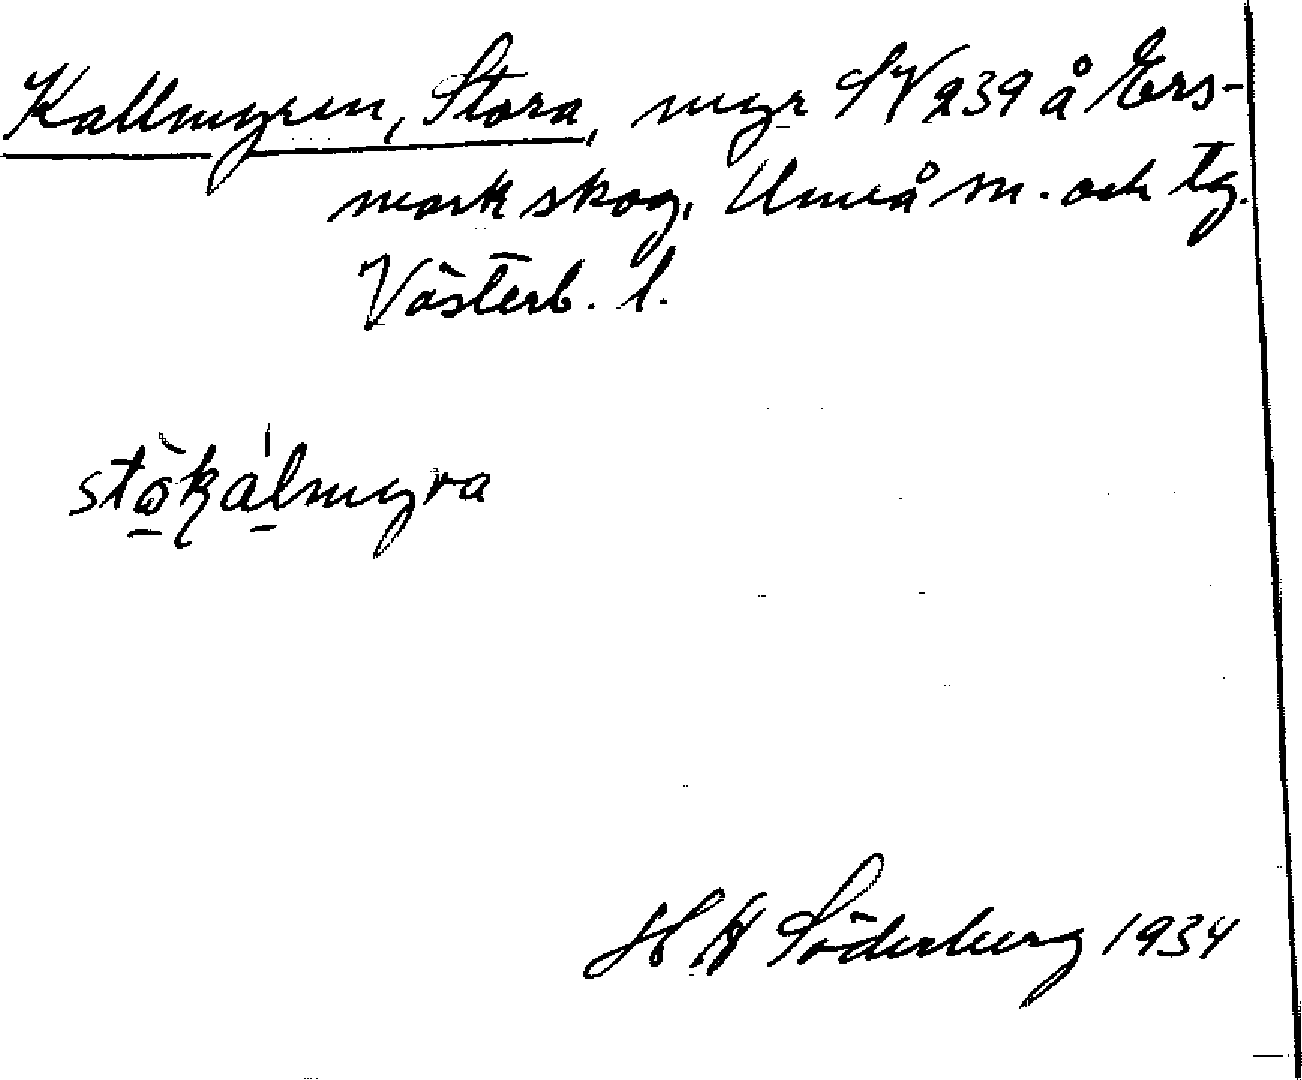 Kallmyren, Stora, myr SV 239 å Ers-
mark skog, Umeå m. och tg.
Västerb. l.
stökalmyra
H H Söderberg 1934